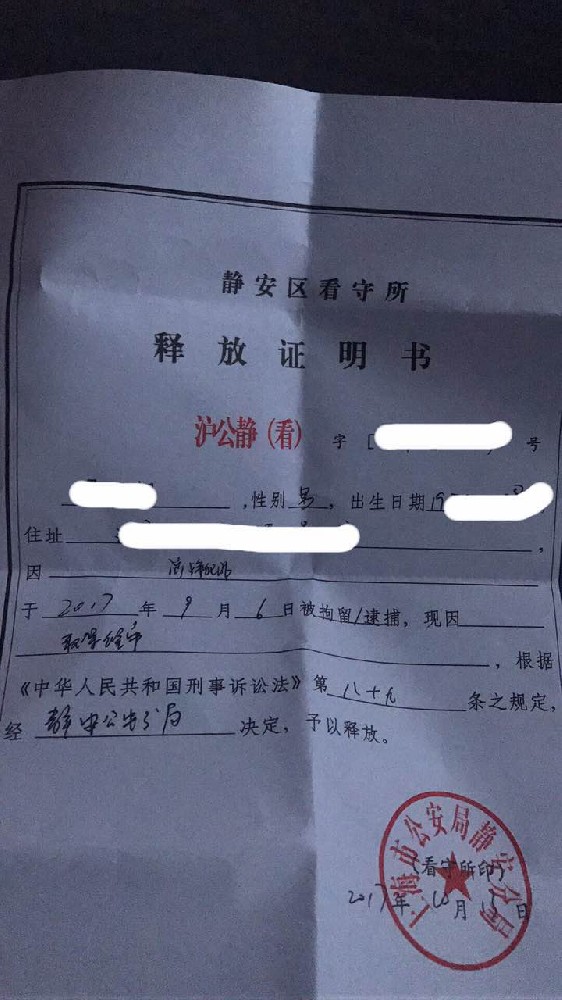 静安区看守所
释放证明书
沪公静（看）字[ 号
,性别男,出生日期19
住址 ,
因
于2017年9月6日被拘留/逮捕,现因
取保候审,根据
《中华人民共和国刑事诉讼法》第八十九条之规定,
经静安公安分局决定,予以释放。
上海市公安局静安分局
(看守所印)
2017年10月 日